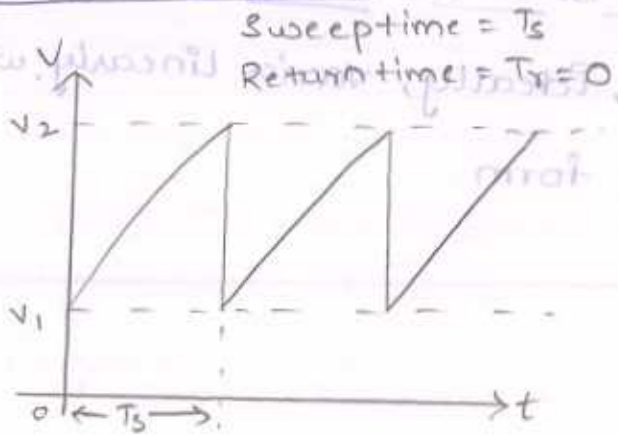 Sweeptime = Ts
Return time = Tr = 0
V
V2
V1
0 ← Ts → t